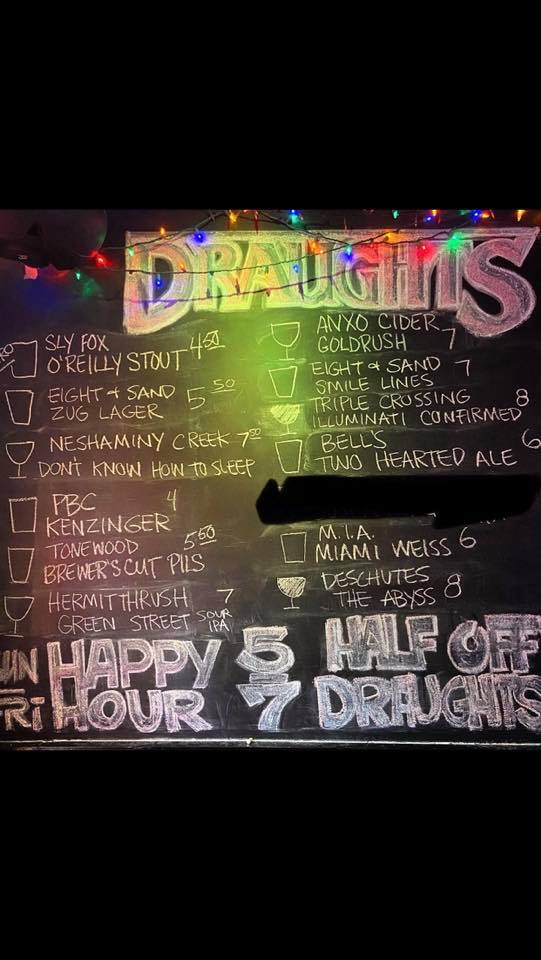 DRAUGHTS
SLY FOX
O'REILLY STOUT 4 50
EIGHT & SAND
ZUG LAGER 5 50
NESHAMINY CREEK 7 50
DON'T KNOW HOW TO SLEEP
PBC 4
KENZINGER
TONEWOOD 5 50
BREWER'S CUT PILS
HERMIT THRUSH 7
GREEN STREET SOUR
IPA
ANXO CIDER
GOLDRUSH 7
EIGHT & SAND 7
SMILE LINES
TRIPLE CROSSING 8
ILLUMINATI CONFIRMED
BELL'S 6
TWO HEARTED ALE
M.I.A.
MIAMI WEISS 6
DESCHUTES
THE ABYSS 8
HAPPY 5 HALF OFF
FRI HOUR 7 DRAUGHTS